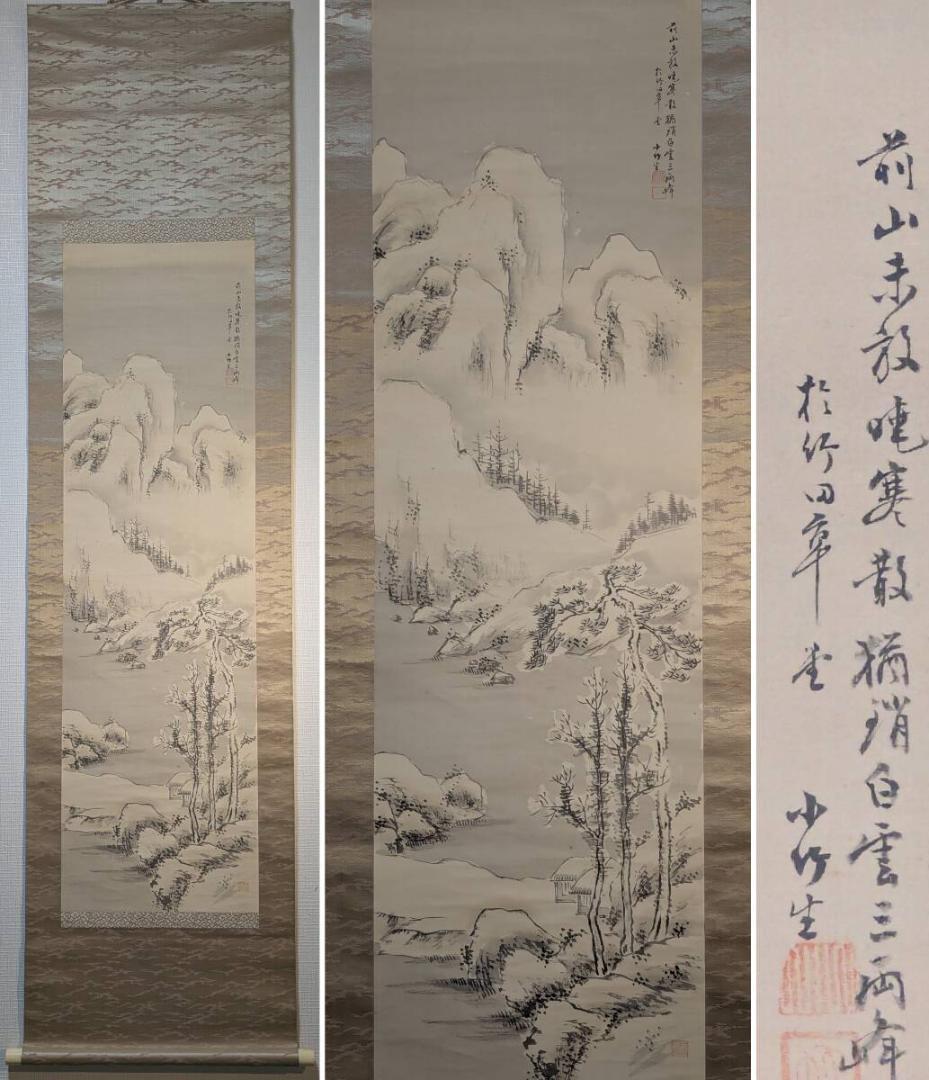 前山未放曉寒散猶鎖白雲三兩峰
於竹田草堂
小竹生